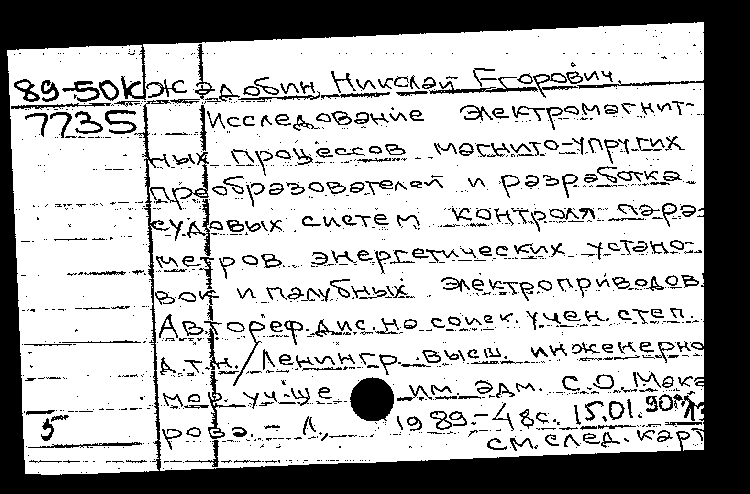 89-50К Жадобин, Николай Егорович.
7735 Исследование электромагнит-
ных процессов магнито-упругих
преобразователей и разработка
судовых систем контроля пара-
метров энергетических устано-
вок и палубных электроприводов.
Автореф. дис. на соиск. учен. степ.
д.т.н. / Ленингр. высш. инженерно
мор. уч-ще им. адм. С.О. Мака
5 рова. – Л., 1989.– 48с. 15.01.90
см. след. карт